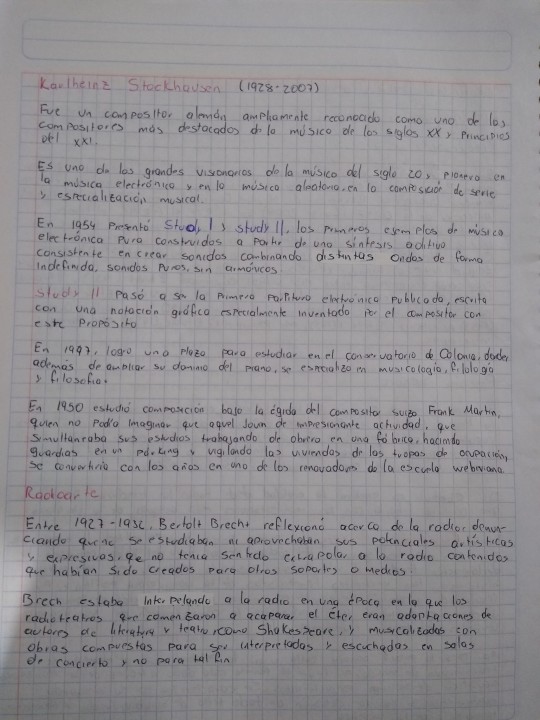 Karlheinz Stockhausen (1928-2007)
Fue un compositor alemán ampliamente reconocido como uno de los
compositores más destacados de la música de los siglos XX y principios
del XXI.
Es uno de los grandes visionarios de la música del siglo 20, pionero en
la música electrónica y en la música aleatoria, en la composición de serie
y especialización musical.
En 1954 Presentó Study I y study II, los primeros ejemplos de música
electrónica Pura construidos a Partir de una síntesis aditiva
consistente en crear sonidos combinando distintas ondas de forma
indefinida, sonidos Puros, sin armónicos
Study II Pasó a ser la Primera Partitura electrónica publicada, escrita
con una notación gráfica especialmente inventada Por el compositor con
este Propósito
En 1947, logro una plaza para estudiar en el conservatorio de Colonia, donde,
además de ampliar su dominio del piano, se especializo en musicología, filología
y filosofia.
En 1950 estudió composición bajo la égida del compositor suizo Frank Martin,
quien no Podía Imaginar que aquel Joven de impresionante actividad, que
Simultaneaba sus estudios trabajando de obrero en una fábrica, haciendo
guardias en un párking y vigilando las viviendas de las tropas de ocupación,
se convertiría con los años en uno de los renovadores de la escuela weberniana
Radioarte
Entre 1927-1932, Bertolt Brecht reflexionó acerca de la radio, denun-
ciando que no se estudiaban ni aprovechaban sus potenciales artísticas
y expresivos, que no tenía sentido extrapolar a la radio contenidos
que habían sido creados para otros soportes o medios.
Brech estaba Interpelando a la radio en una época en la que los
radioteatros que comenzaron a acaparar el éter, eran adaptaciones de
autores de literatura y teatro, como Shakespeare, y musicalizadas con
obras compuestas para ser interpretadas y escuchadas en salas
de concierto y no para tal fin